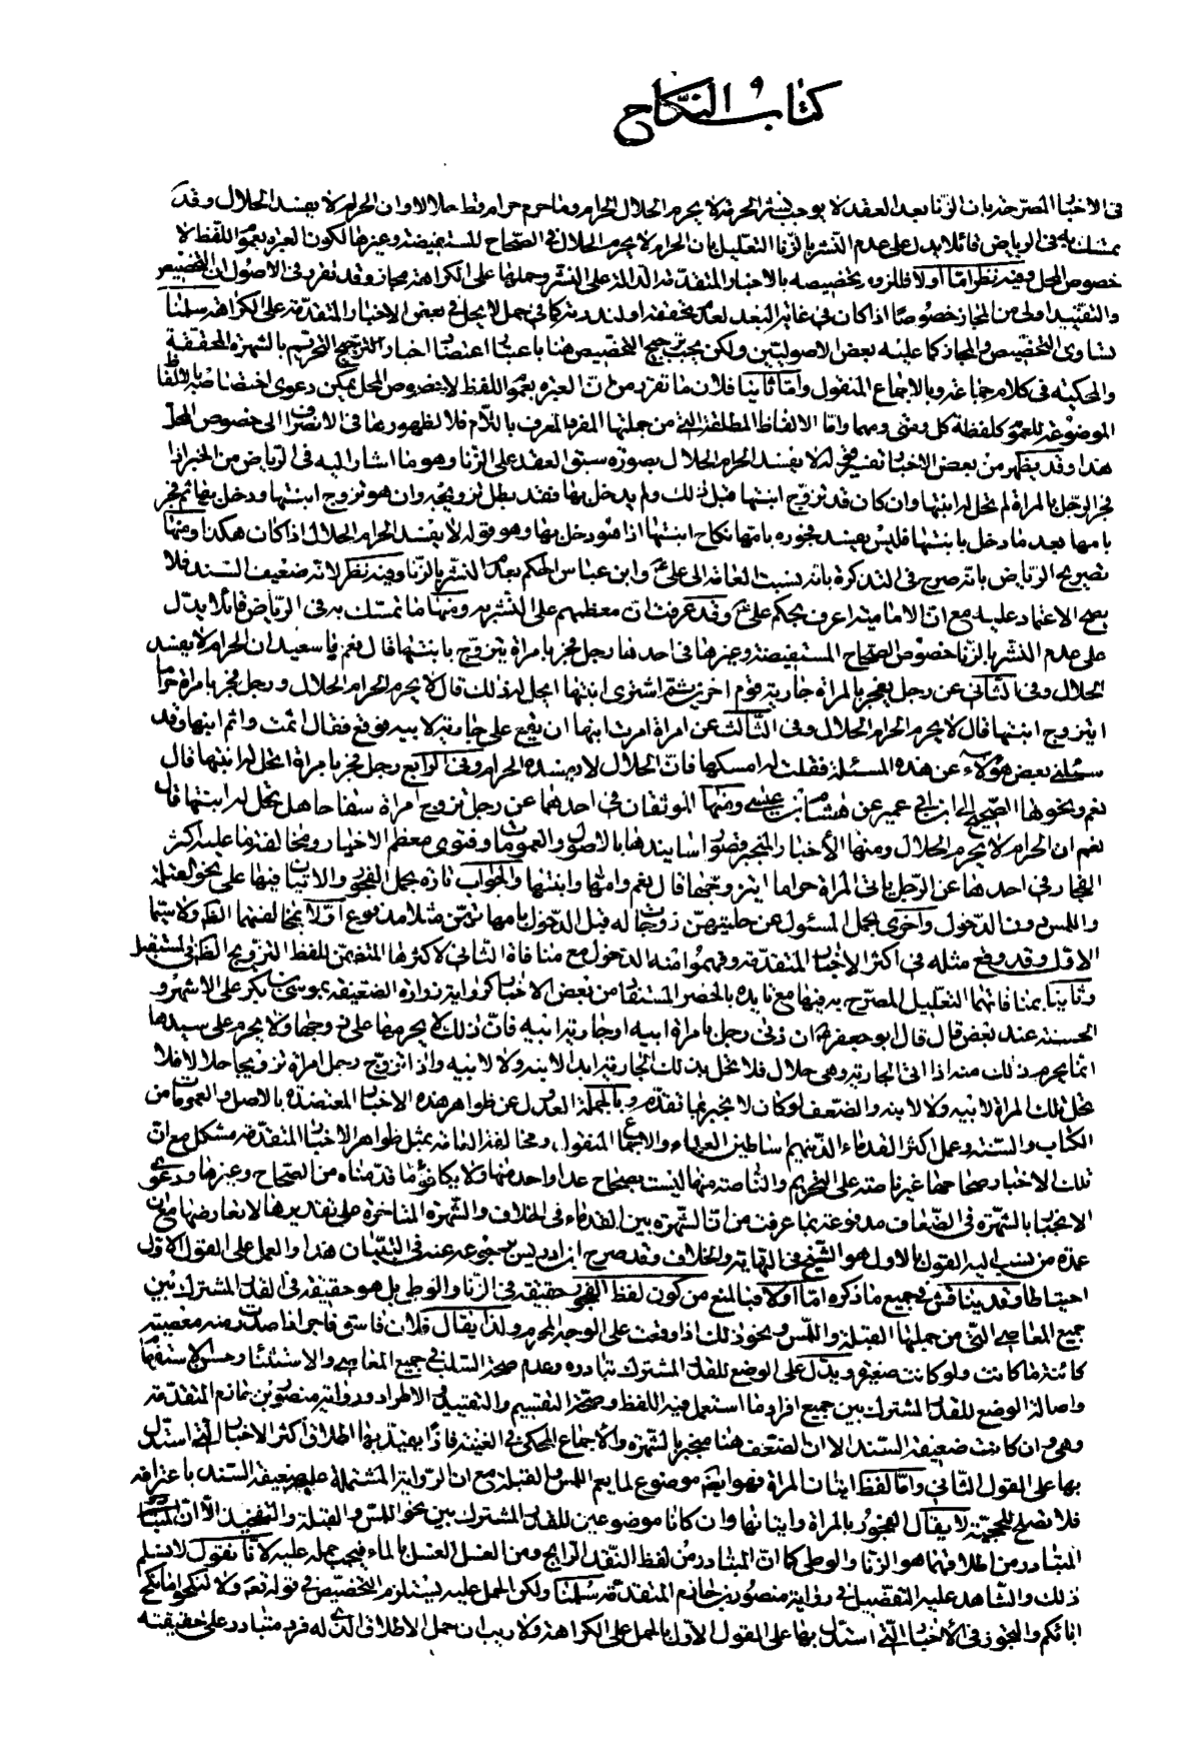 كتاب النكاح
فى الاخبار المصرحة بان الزنا بعد العقد لا يوجب نشر الحرمة لا يحرم الحلال الحرام وما حرم حرام قط حلالا وان الحرام لا يفسد الحلال وقد
تمسك به فى الرياض قائلا يدل على عدم النشر بالزنا التعليل بان الحرام لا يحرم الحلال فى الصحاح المستفيضة وغيرها لكون العبرة بعموم اللفظ لا
خصوص المحل وفيه نظر اما اولا فللزوم تخصيصه بالاخبار المتقدمة الدالة على النشر وحملها على الكراهة مجاز وقد تقرر فى الاصول ان التخصيص
والتقييد اولى من المجاز خصوصا اذا كان فى غاية البعد لعدم تحققه او لندرته كما فى حمل لا يحل فى بعض الاخبار المتقدمة على الكراهة سلمنا
تساوى التخصيص والمجاز كما عليه بعض الاصوليين ولكن يجب ترجيح التخصيص هنا باعتبار اعتضاد اخبار الترجيح التحريم بالشهرة المحققة
والمحكية فى كلام جماعة وبالاجماع المنقول واما ثانيا فلان ما تقرر من ان العبرة بعموم اللفظ لا بخصوص المحل يمكن دعوى اختصاصه بالالفاظ
الموضوعة للعموم كلفظة كل ومتى ومهما واما الالفاظ المطلقة التى من جملتها المفرد المعرف باللام فلا لظهورها فى الانصراف الى خصوص المحل
هذا وقد يظهر من بعض الاخبار تفسير قوله لا يفسد الحرام الحلال بصورة سبق العقد على الزنا وهو ما اشار اليه فى الرياض من الخبر اذا
فجر الرجل بالمراة لم تحل له ابنتها وان كان قد تزوج ابنتها قبل ذلك ولم يدخل بها فقد بطل تزويجه وان هو تزوج ابنتها ودخل بها ثم فجر
بامها بعد ما دخل بابنتها فليس يفسد فجوره بامها نكاح ابنتها اذا هو دخل بها وهو قوله لا يفسد الحرام الحلال اذا كان هكذا ومنها
تصريح الرياض بانه صرح فى التذكرة بانه نسبت العامة الى على ع وابن عباس الحكم بعدم النشر بالزنا وفيه نظر لانه ضعيف السند فلا
يصح الاعتماد عليه مع ان الامامية اعرف بحكم على ع وقد عرفت ان معظمهم على النشر به ومنها ما تمسك به فى الرياض قائلا يدل
على عدم النشر بالزنا خصوص الصحاح المستفيضة وغيرها فى احدها رجل فجر بامراة يتزوج بابنتها قال نعم يا سعيد ان الحرام لا يفسد
الحلال وفى الثانى عن رجل يفجر بالمراة جارية قوم اخرين ثم اشترى ابنتها ايحل له ذلك قال لا يحرم الحرام الحلال ورجل فجر بامراة حراما
ايتزوج ابنتها قال لا يحرم الحرام الحلال وفى الثالث عن امراة امرت ابنها ان يقع على جارية لابيه فوقع فقال اثمت واثم ابنها وقد
سئلنى بعض هؤلاء عن هذه المسئلة فقلت له امسكها فان الحلال لا يفسده الحرام وفى الرابع رجل فجر بامراة اتحل له ابنتها قال
نعم ونحوها الصحيح الى ابن ابى عمير عن هشام بن ومنها الموثقان فى احدهما عن رجل تزوج امراة سفاحا هل تحل له ابنتها قال
نعم ان الحرام لا يحرم الحلال ومنها الأخبار المنجبر قصور اسانيدها بالاصول والعمومات وفتوى معظم الاخيار ومخالفة ما عليه اكثر
الفجار فى احدها عن الرجل ياتى المراة حراما ايتزوجها قال نعم وامها وابنتها والجواب تارة بحمل الفجور والاتيان فيها على نحو القبلة
واللمس دون الدخول واخرى بحمل المسئول عن حليتهن زوجات له قبل الدخول بامهاتهن مثلا مدفوع اولا بمخالفتهما الظهر ولا سيما
الاول وقد وقع مثله فى اكثر الاخبار المتقدمة وفهموا منه الدخول مع منافاة الثانى لاكثرها المتضمن للفظ التزويج الظاهر فى المستقبل
وثانيا بمنافاتهما التعليل المصرح به فيها مع تايده بالحصر المستفاد من بعض الاخبار كرواية زرارة الضعيفة بموسى بن بكر على الاشهر و
الحسنة عند بعض قال قال ابو جعفر ع ان زنى رجل بامراة ابيه او جارية ابيه فان ذلك لا يحرمها على زوجها ولا يحرم على سيدها
انما يحرم ذلك منه اذا اتى الجارية وهى حلال فلا تحل بذلك الجارية ابدا لابنه ولا لابيه واذا تزوج رجل امراة تزويجا حلالا فلا
تحل تلك المراة لابيه ولا لابنه والضعف لو كان لا نجبر بما تقدم وبالجملة العدول عن ظواهر هذه الاخبار المعتضدة بالاصل والعمومات من
الكتاب والسنة وعمل اكثر القدماء الذينهم اساطين العرباء والاجماع المنقول ومخالفة العامة بمثل ظواهر الاخبار المتقدمة مشكل مع ان
تلك الاخبار صحاحها غير ناصة على التحريم والناصة منها ليست بصحاح عدا واحد منها ولا يكافؤ ما قدمناه من الصحاح وغيرها ودعوى
الانجبار بالشهرة فى الضعاف مدفوعة بما عرفت من ان الشهرة بين القدماء فى الخلاف والشهرة المتاخرة على تقديرها لا تعارضها مع ان
عمدة من نسب اليه القول بالاول هو الشيخ فى النهاية والخلاف وقد صرح ابن ادريس برجوعه عنه فى التبيان هذا والعمل على القول الاول
احتياطا وقد يناقش فى جميع ما ذكره اما اولا فبالمنع من كون لفظ الفجور حقيقة فى الزنا والوطى بل هو حقيقة فى القدر المشترك بين
جميع المعاصى التى من جملتها القبلة واللمس ونحو ذلك اذا وقعت على الوجه المحرم ولذا يقال فلان فاسق فاجر اذا صدرت منه معصية
كائنة ما كانت ولو كانت صغيرة ويدل على الوضع للقدر المشترك تبادره وعدم صحة السلب فى جميع المعاصى والاستثناء وحسن الاستفهام
واصالة الوضع للقدر المشترك بين جميع افراد ما استعمل فيه اللفظ وصحة التقسيم والتقييد والاطراد ورواية منصور بن حازم المتقدمة
وهى وان كانت ضعيفة السند الا ان الضعف هنا منجبر بالشهرة والاجماع المحكى فى الغنية فاذا يقيد بها اطلاق اكثر الاخبار التى استدل
بها على القول الثانى واما لفظ اتيان المراة فهو ايضا موضوع لما يعم اللمس والقبلة مع ان الرواية المشتملة عليه ضعيفة السند باعترافه
فلا تصلح للحجية لا يقال الفجور بالمراة واتيانها وان كانا موضوعين للقدر المشترك بين نحو اللمس والقبلة والتفخيذ الا ان
المتبادر من اطلاقهما هو الزنا والوطى كما ان المتبادر من لفظ النقد الرايج ومن الغسل الغسل بالماء فيجب حمله عليه لانا نقول لا نسلم
ذلك والشاهد عليه التفصيل فى رواية منصور بن حازم المتقدمة سلمنا ولكن الحمل عليه يستلزم التخصيص فى قوله تعم ولا تنكحوا ما نكح
ابائكم والتجوز فى الأخبار التى استدل بها على القول الاول بالحمل على الكراهة ولا ريب ان حمل الاطلاق الذى له فرد متبادر على حقيقته